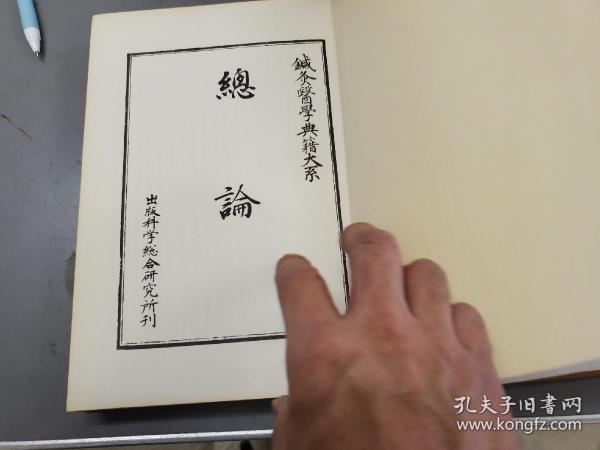 鍼灸醫學典籍大系
總論
出版科学総合研究所刊
孔夫子旧書网
www.kongfz.com